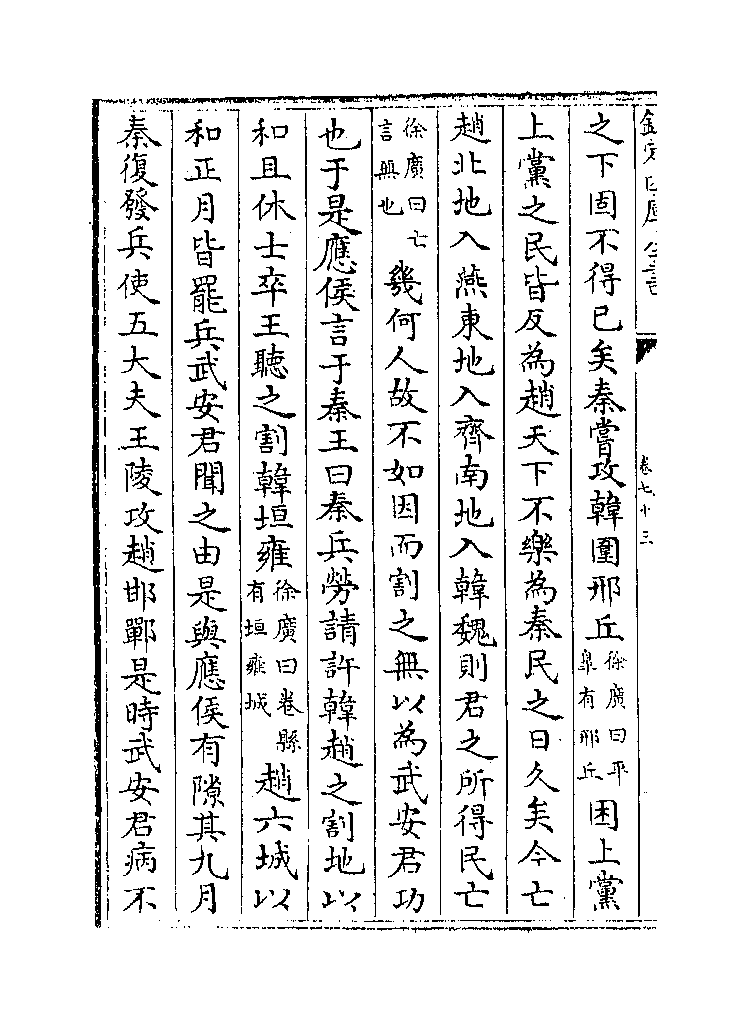 欽定四庫全書
卷七十三
之下固不得已矣秦嘗攻韓圍邢丘徐廣曰平臯有邢丘困上黨
上黨之民皆反為趙天下不樂為秦民之日久矣今亡
趙北地入燕東地入齊南地入韓魏則君之所得民亡
徐廣曰亡言無也幾何人故不如因而割之無以為武安君功
也于是應侯言于秦王曰秦兵勞請許韓趙之割地以
和且休士卒王聽之割韓垣雍徐廣曰卷縣有垣雍城趙六城以
和正月皆罷兵武安君聞之由是與應侯有隙其九月
秦復發兵使五大夫王陵攻趙邯鄲是時武安君病不